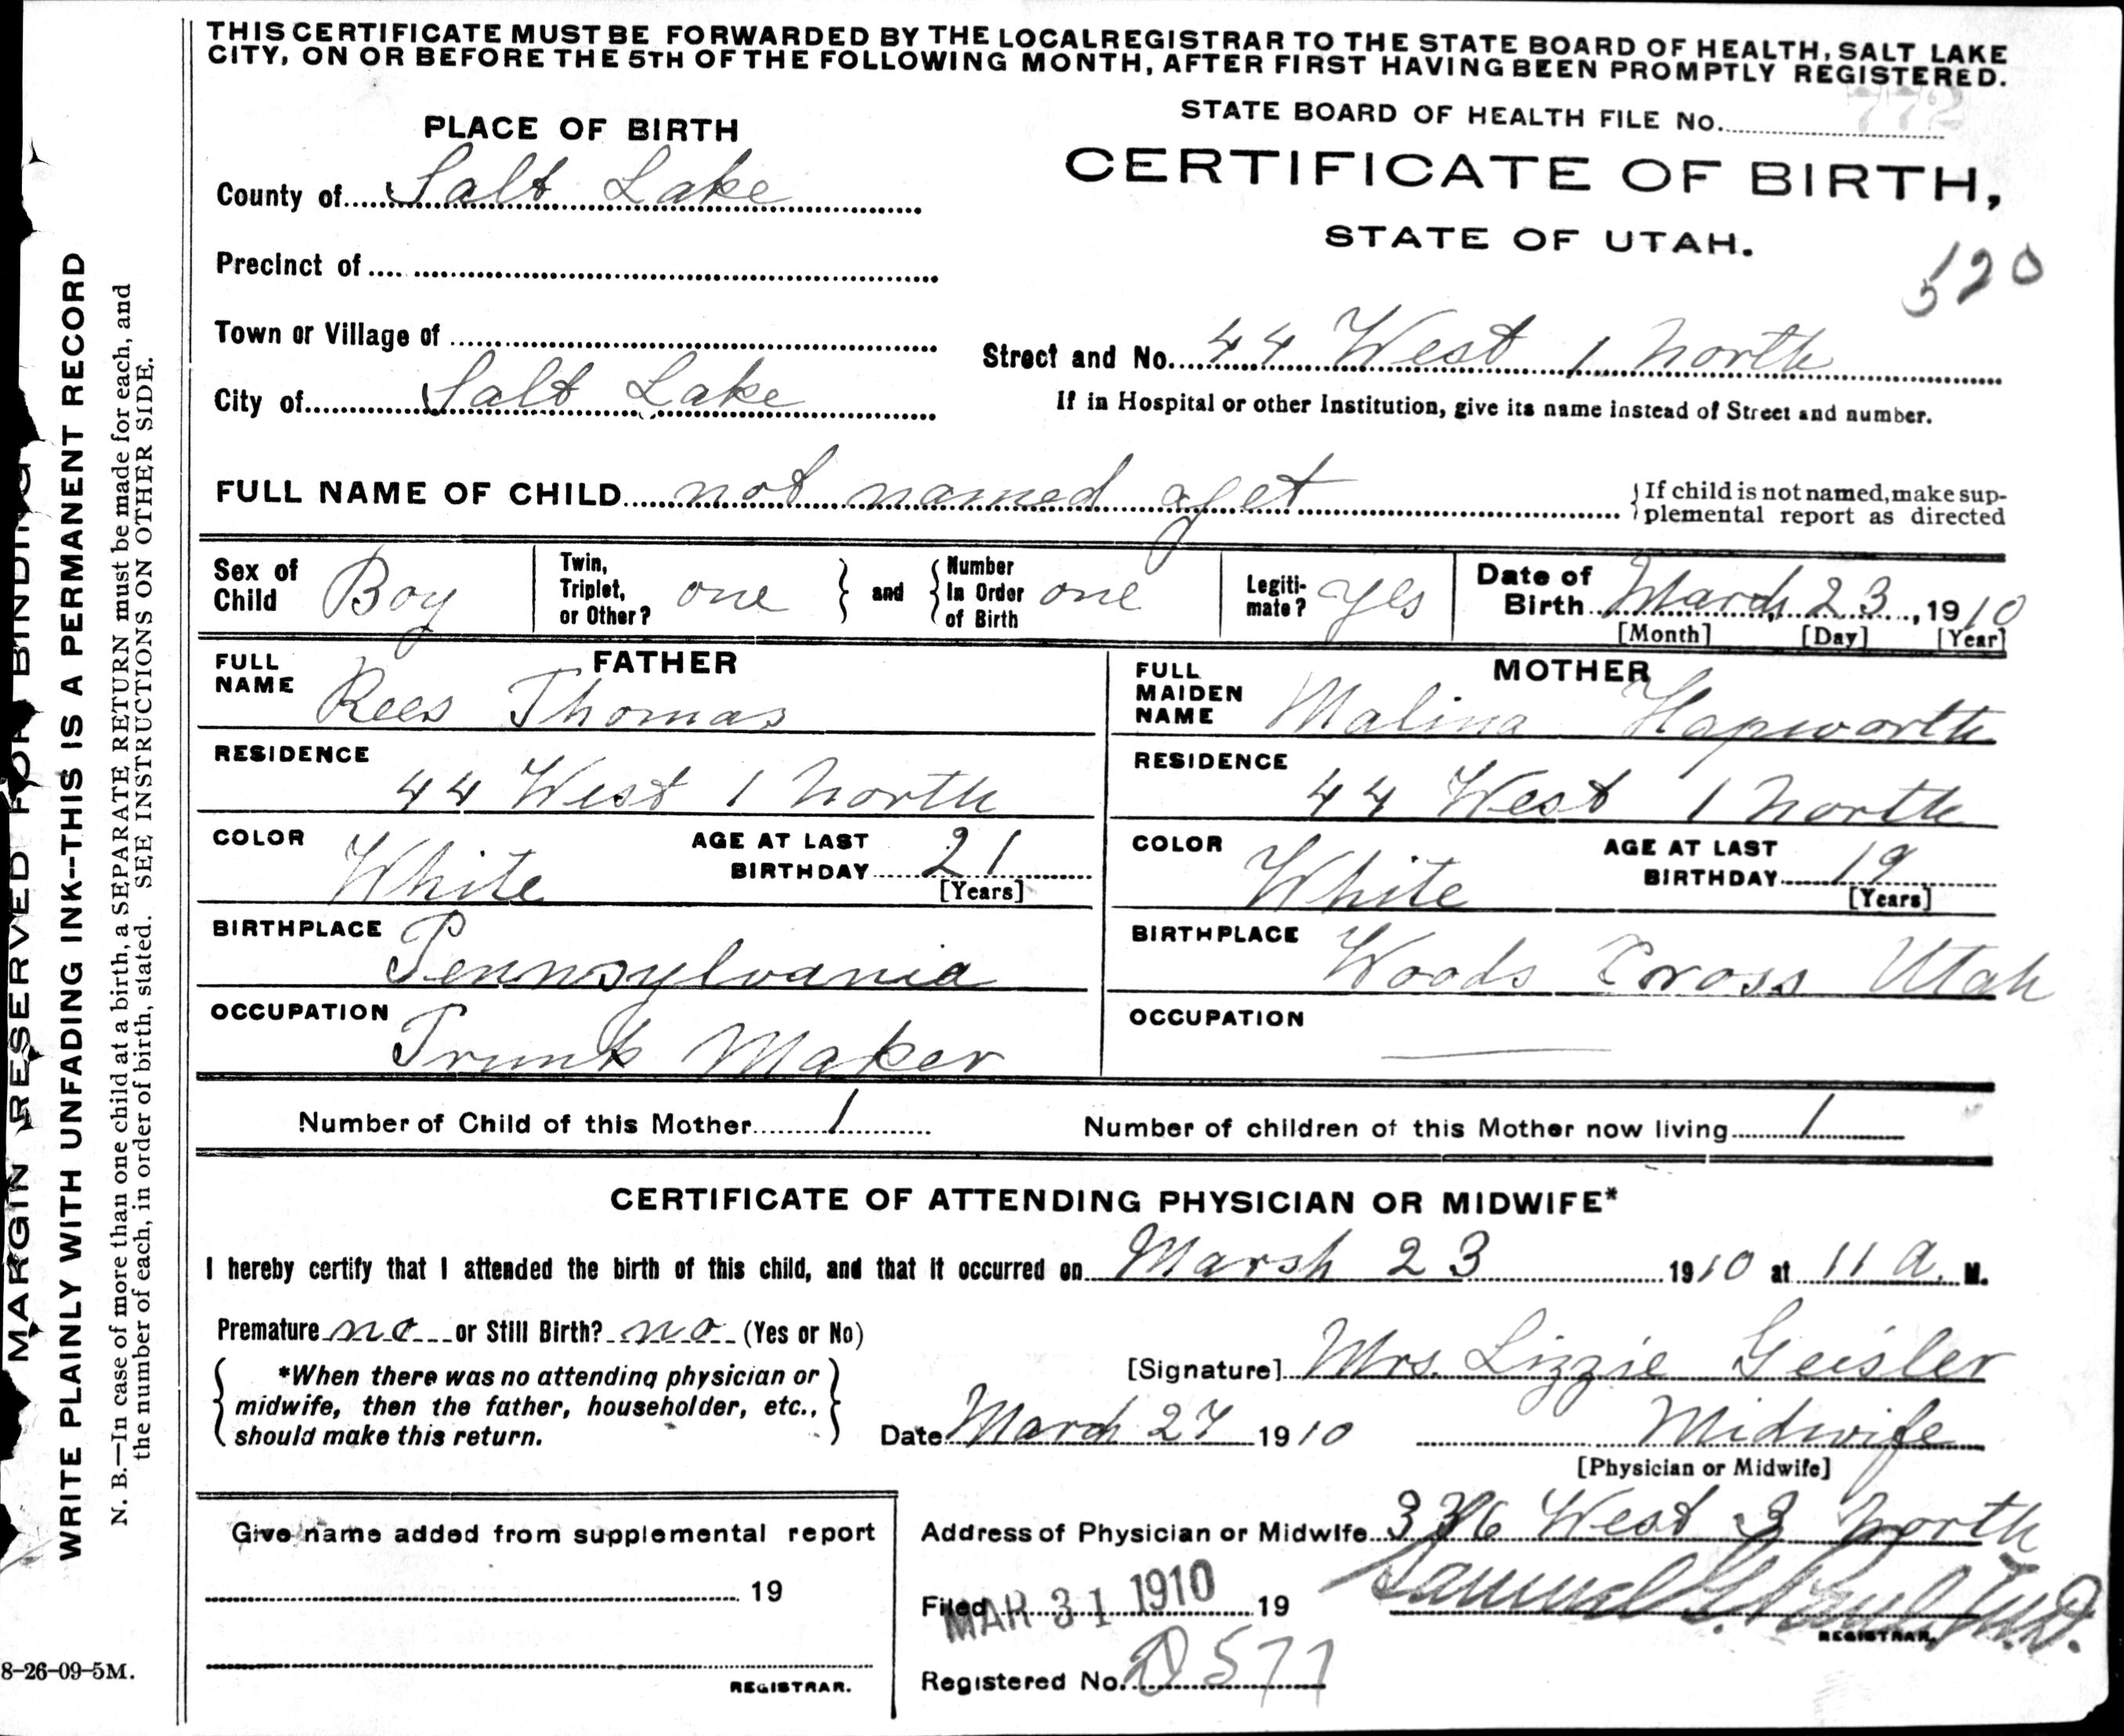 THIS CERTIFICATE MUST BE FORWARDED BY THE LOCAL REGISTRAR TO THE STATE BOARD OF HEALTH, SALT LAKE
CITY, ON OR BEFORE THE 5TH OF THE FOLLOWING MONTH, AFTER FIRST HAVING BEEN PROMPTLY REGISTERED.
STATE BOARD OF HEALTH FILE No. 772
PLACE OF BIRTH
CERTIFICATE OF BIRTH,
STATE OF UTAH.
520
County of Salt Lake
Precinct of
Town or Village of
Street and No. 44 West 1 North
City of Salt Lake
If in Hospital or other Institution, give its name instead of Street and number.
FULL NAME OF CHILD not named yet
If child is not named, make sup-
plemental report as directed
Sex of Child Boy
Twin, Triplet, or Other? one and Number In Order of Birth one
Legiti-mate? yes
Date of Birth March 23, 1910
[Month] [Day] [Year]
FATHER
FULL NAME Rees Thomas
MOTHER
FULL MAIDEN NAME Malina Hapworth
RESIDENCE 44 West 1 North
RESIDENCE 44 West 1 North
COLOR White AGE AT LAST BIRTHDAY 21 [Years]
COLOR White AGE AT LAST BIRTHDAY 19 [Years]
BIRTHPLACE Pennsylvania
BIRTHPLACE Woods Cross Utah
OCCUPATION Trunk Maker
OCCUPATION
Number of Child of this Mother 1
Number of children of this Mother now living 1
CERTIFICATE OF ATTENDING PHYSICIAN OR MIDWIFE*
I hereby certify that I attended the birth of this child, and that it occurred on Marsh 23 1910 at 11 a. M.
Premature no or Still Birth? no (Yes or No)
*When there was no attending physician or
midwife, then the father, householder, etc.,
should make this return.
[Signature] Mrs. Lizzie Geisler
Date March 27 1910
Midwife
[Physician or Midwife]
Give name added from supplemental report
19
REGISTRAR.
Address of Physician or Midwife 336 West 3 North
Filed MAR 31 1910 19
Samuel G. Paul, M.D.
REGISTRAR.
Registered No. 577
MARGIN RESERVED FOR BINDING
WRITE PLAINLY WITH UNFADING INK--THIS IS A PERMANENT RECORD
N. B.—In case of more than one child at a birth, a SEPARATE RETURN must be made for each, and
the number of each, in order of birth, stated. SEE INSTRUCTIONS ON OTHER SIDE.
8-26-09-5M.